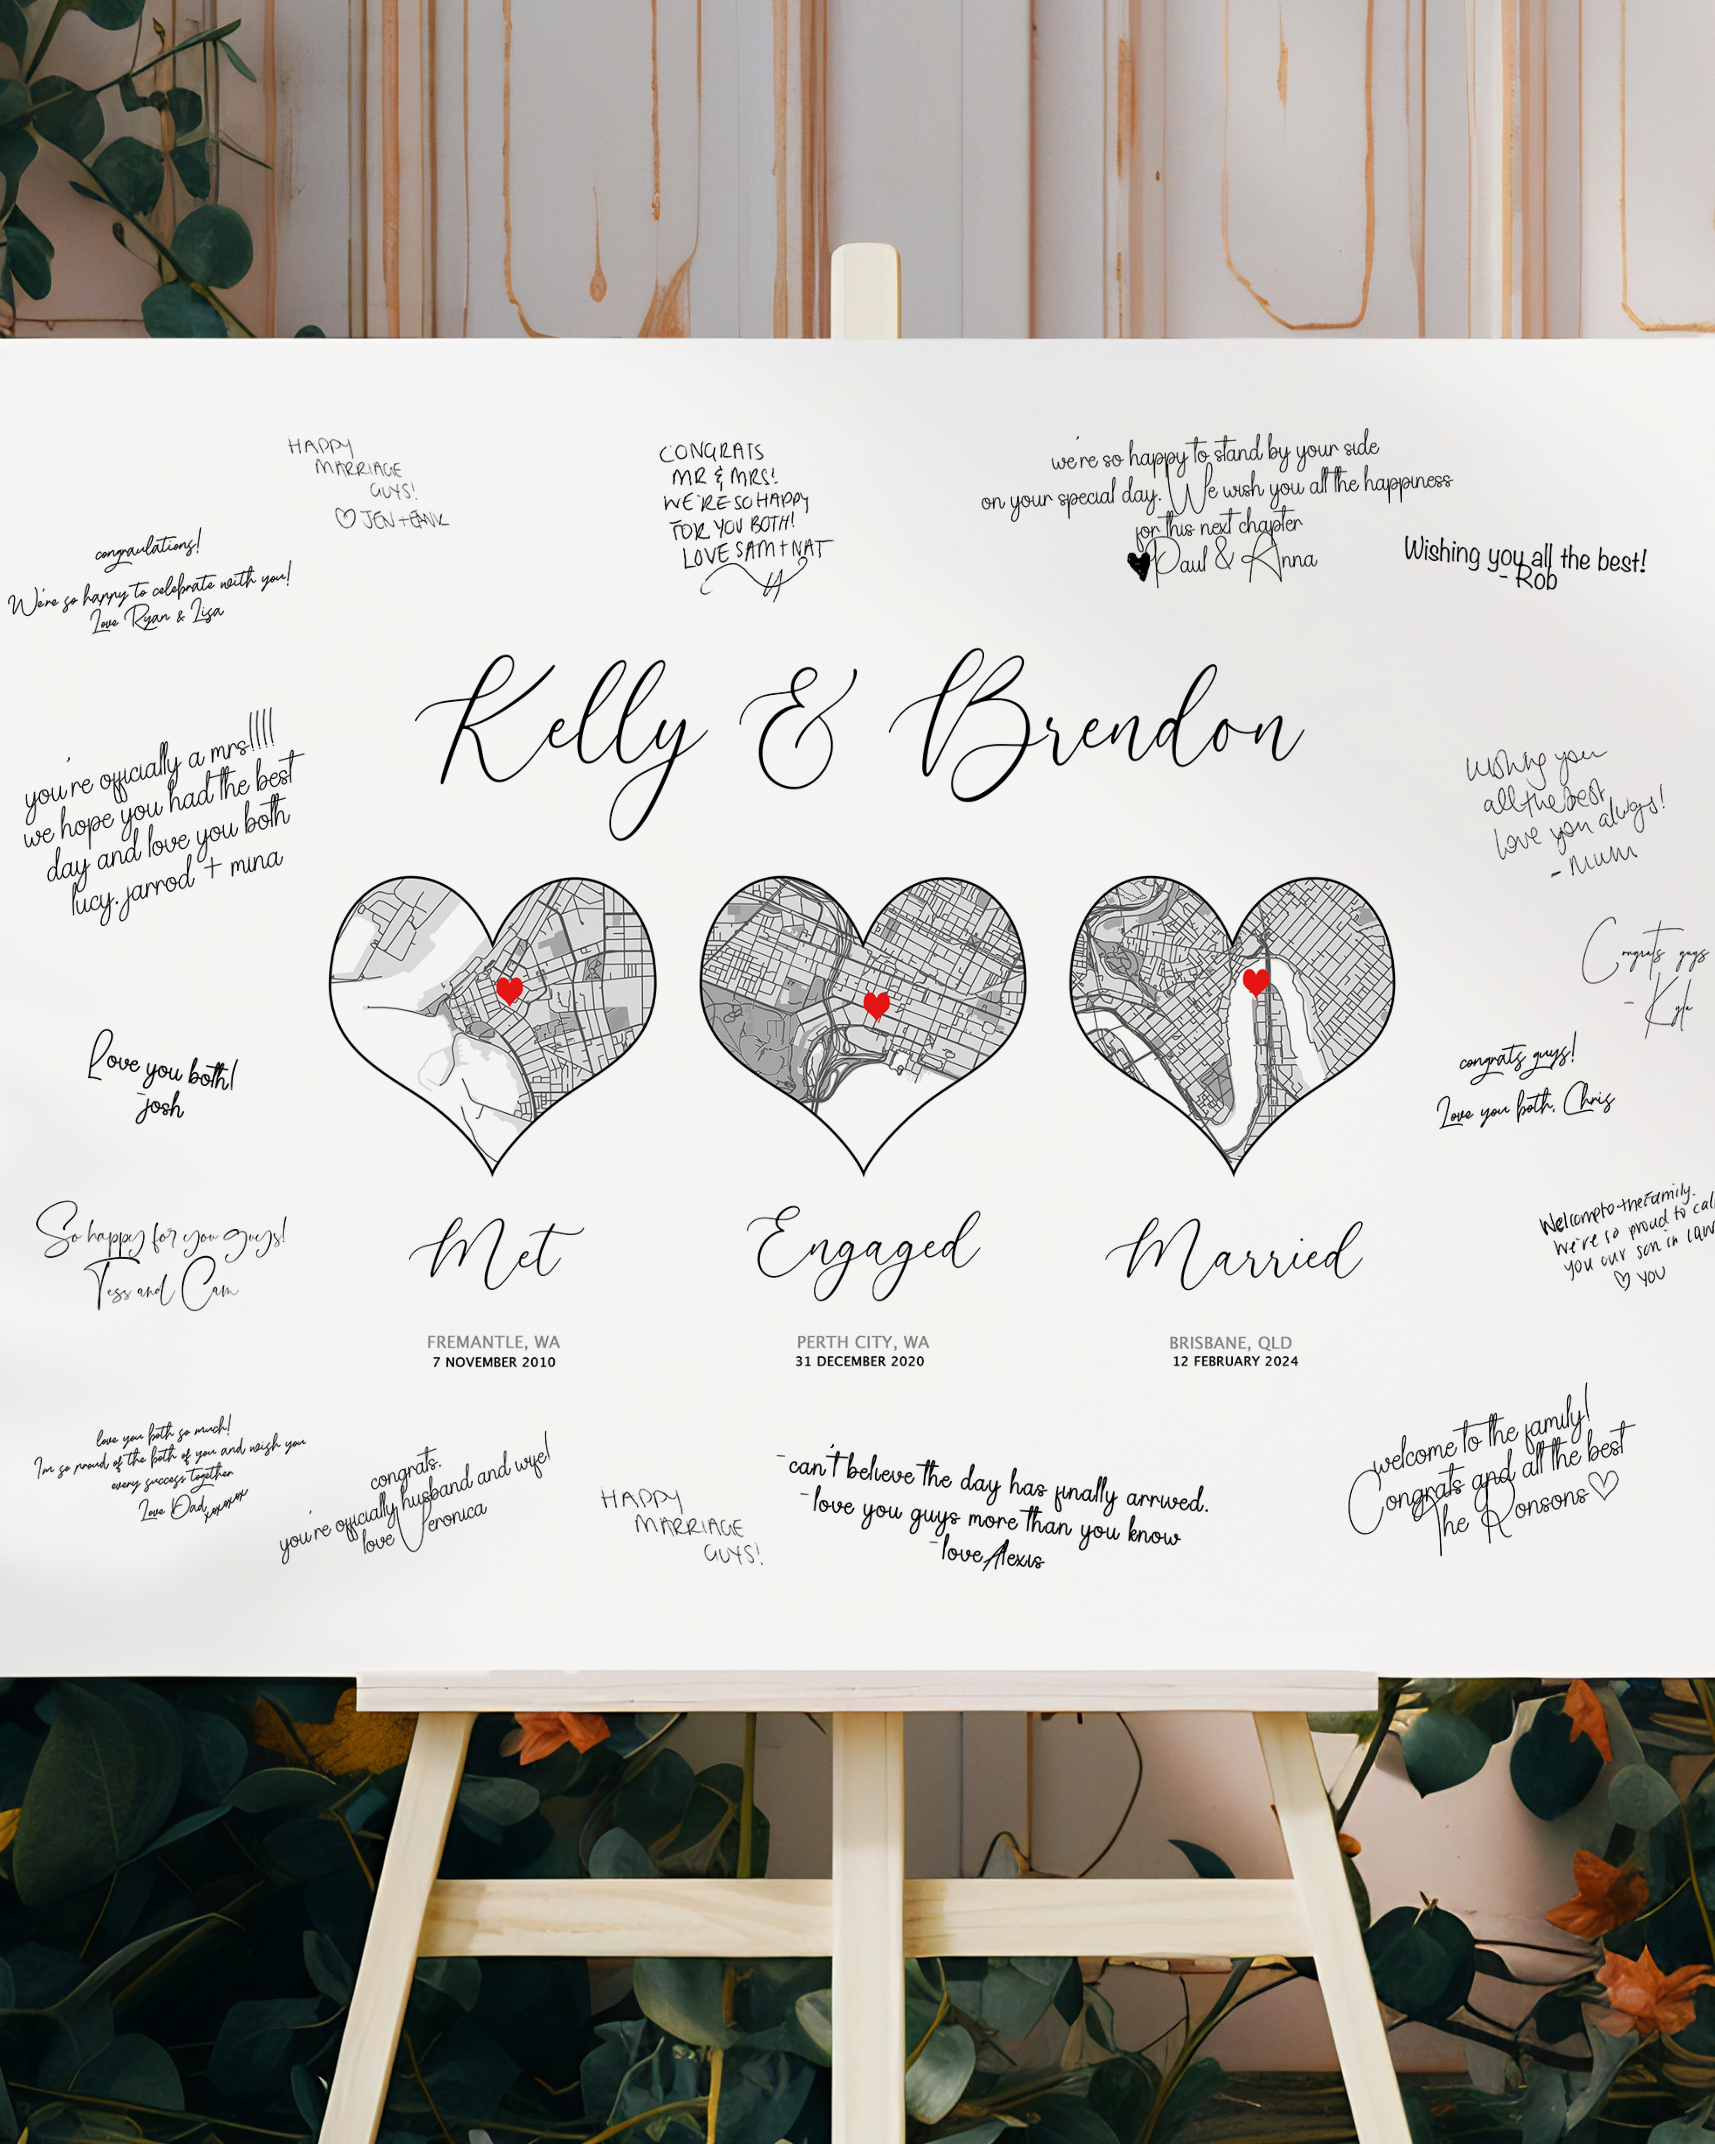 HAPPY
MARRIAGE
GUYS!
♡ JEN +
CONGRATS
MR & MRS!
WE'RE SO HAPPY
FOR YOU BOTH!
LOVE SAM + NAT
we're so happy to stand by your side
on your special day. We wish you all the happiness
for this next chapter
♥ Paul & Anna
Wishing you all the best!
- Rob
congraulations!
We're so happy to celebrate with you!
Love Ryan & Lisa
Kelly & Brendon
you're officially a mrs!!!!
we hope you had the best
day and love you both
lucy. jarrod + mina
wishing you
all the best
love you always!
- mum
Congrats guys
- Kyle
Love you both!
-josh
congrats guys!
Love you both, Chris
So happy for you guys!
Tess and Cam
Welcome to the family.
we're so proud to call
you our son in law
♡ YOU
Met
Engaged
Married
FREMANTLE, WA
7 NOVEMBER 2010
PERTH CITY, WA
31 DECEMBER 2020
BRISBANE, QLD
12 FEBRUARY 2024
love you both so much!
Im so proud of the both of you and wish you
every success together
Love Dad xoxoxox
congrats.
you're officially husband and wife!
love Veronica
HAPPY
MARRIAGE
GUYS!
-can't believe the day has finally arrived.
-love you guys more than you know
-love Alexis
welcome to the family!
Congrats and all the best
The Ronsons ♡